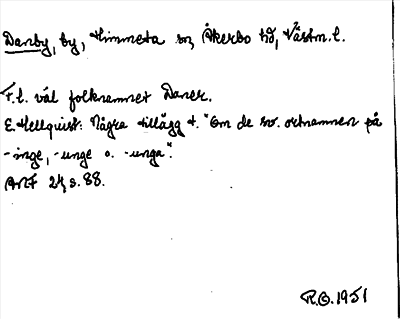 Danby, by, Himmeta sn, Åkerbo hd, Västm. l.
F. l. väl folknamnet Daner.
E. Hellquist: Några tillägg t. "Om de sv. ortnamnen på
-inge, -unge o. -unga".
ANF 24, s. 88.
R.O. 1951